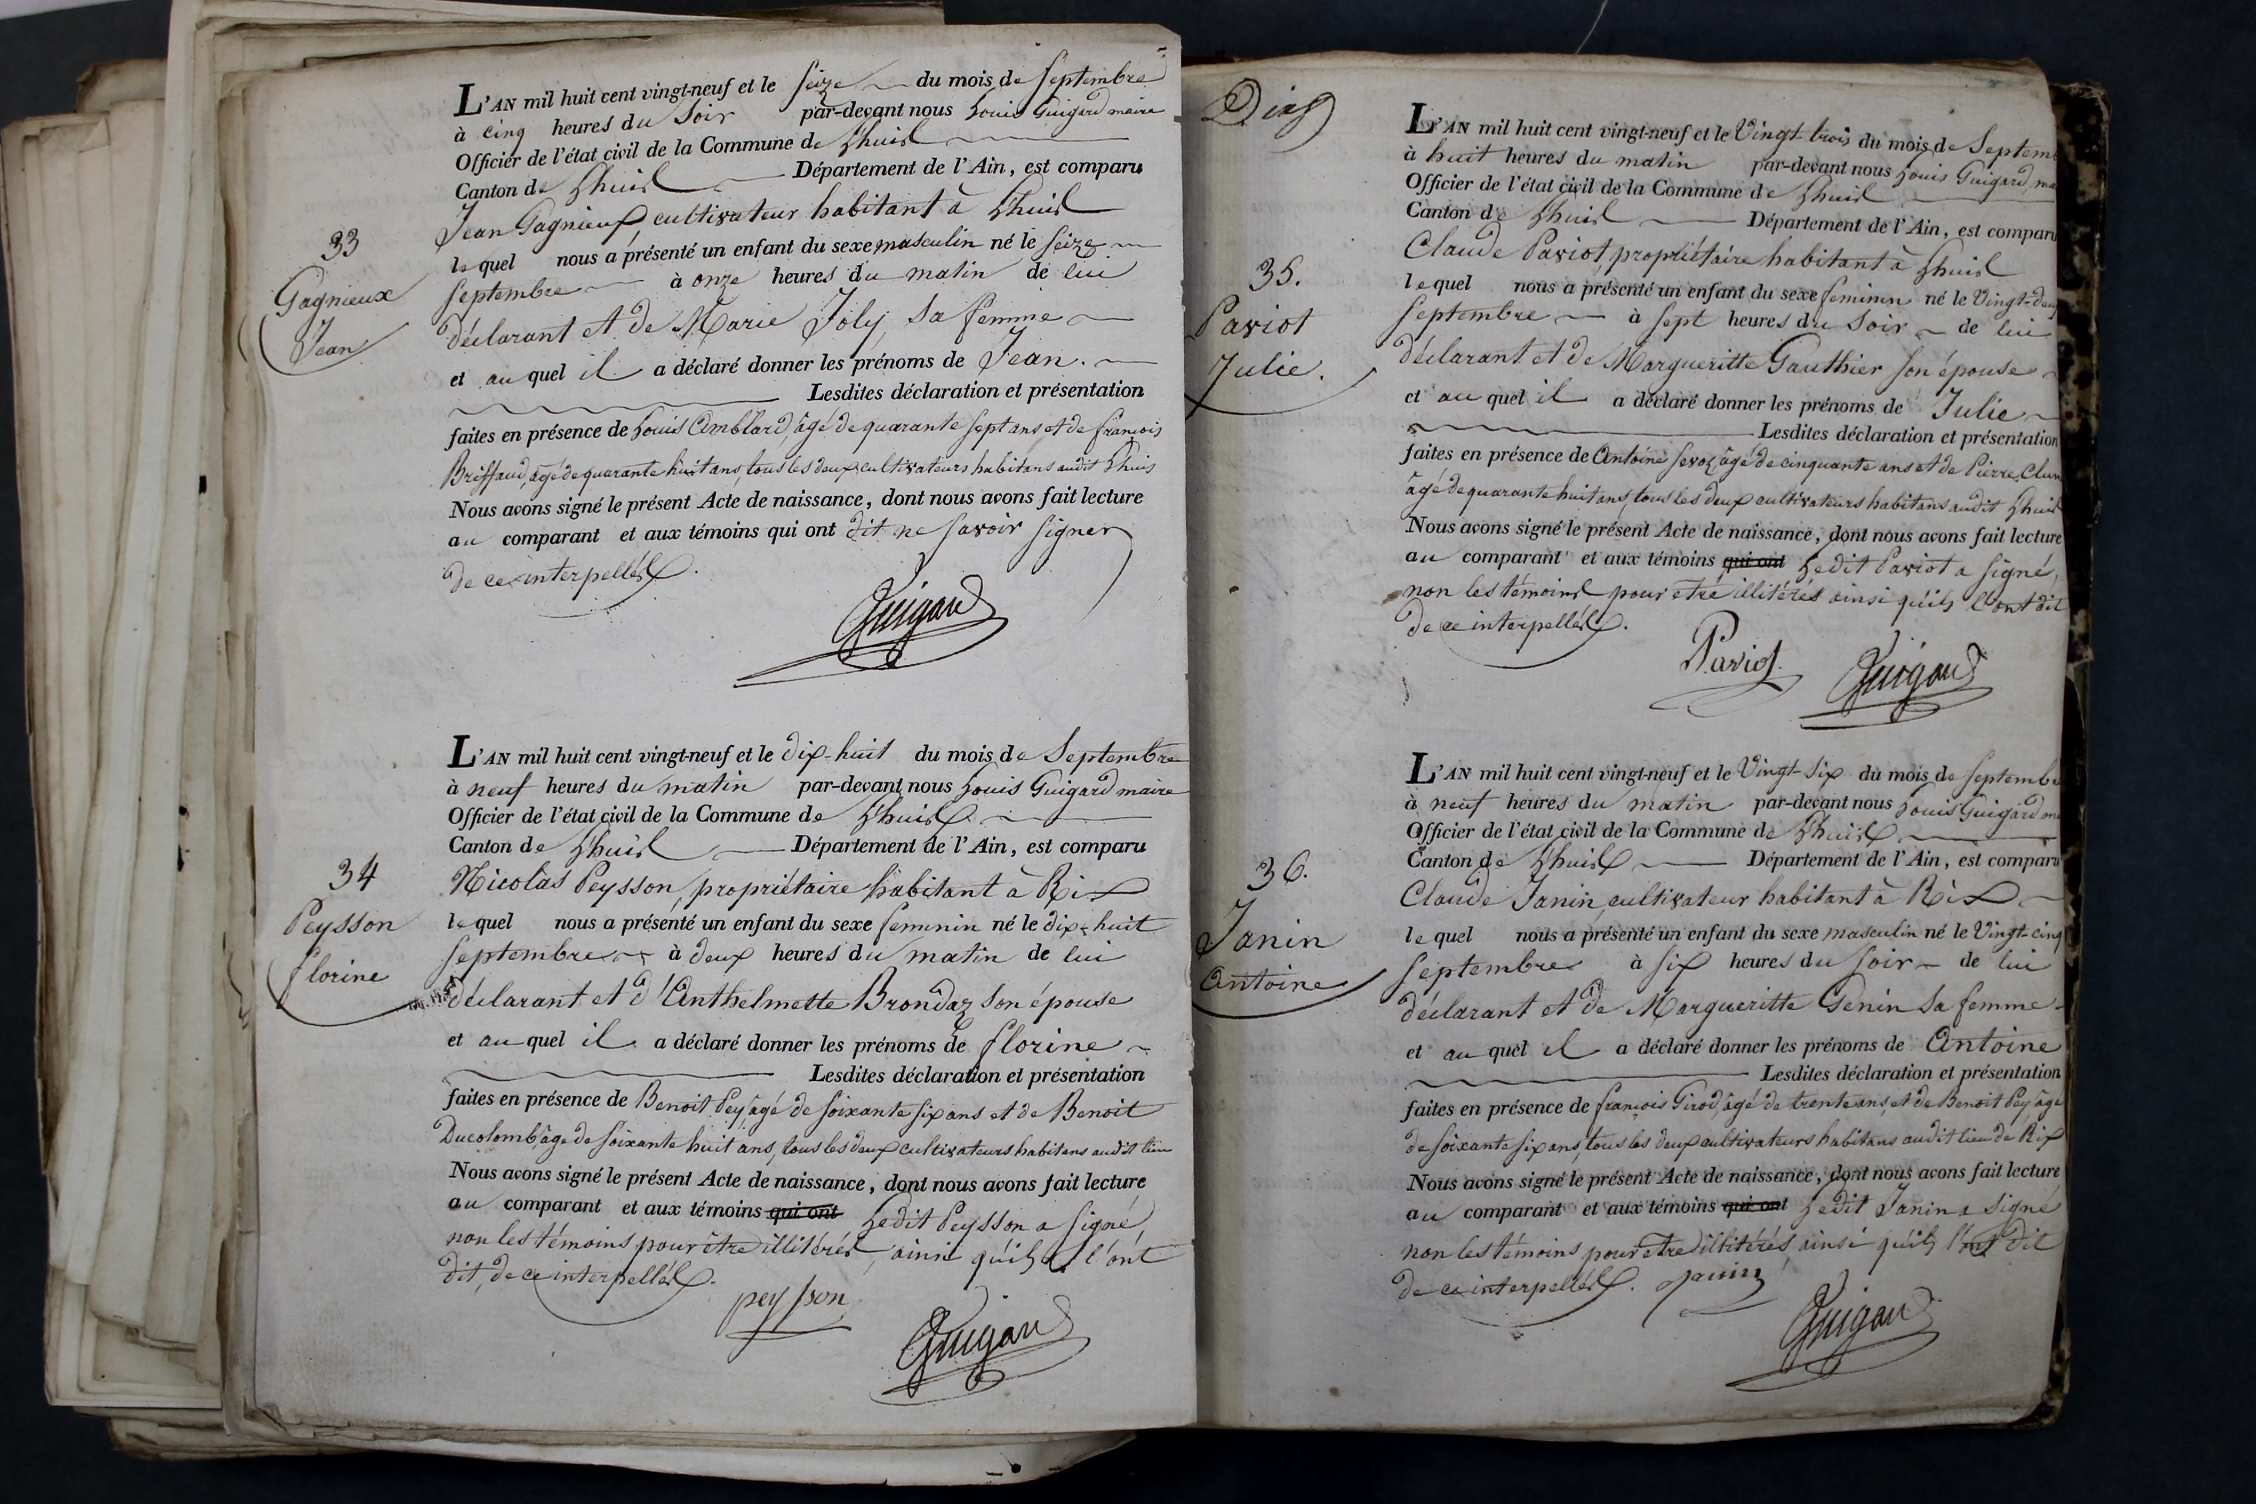 L'AN mil huit cent vingt-neuf et le Seize du mois de Septembre
à cinq heures du Soir par-devant nous Louis Guigard maire
Officier de l'état civil de la Commune de Lhuis
Canton de Lhuis Département de l'Ain, est comparu
Jean Gagnieux, cultivateur habitant à Lhuis
33
lequel nous a présenté un enfant du sexe masculin né le Seize
Gagnieux
Septembre à onze heures du matin de lui
Jean
déclarant et de Marie Joly, sa femme
et auquel il a déclaré donner les prénoms de Jean.
Lesdites déclaration et présentation
faites en présence de Louis Amblard, âgé de quarante sept ans et de françois
Briffaud, âgé de quarante huit ans, tous les deux cultivateurs habitans audit Lhuis
Nous avons signé le présent Acte de naissance, dont nous avons fait lecture
au comparant et aux témoins qui ont dit ne savoir signer
de ce interpellés.
Guigard
L'AN mil huit cent vingt-neuf et le dix-huit du mois de Septembre
à neuf heures du matin par-devant nous Louis Guigard maire
Officier de l'état civil de la Commune de Lhuis
Canton de Lhuis Département de l'Ain, est comparu
34
Nicolas Peysson, propriétaire habitant à Rix
Peysson
lequel nous a présenté un enfant du sexe feminin né le dix-huit
florine
Septembre à deux heures du matin de lui
déclarant et d'Anthelmette Brondaz son épouse
et auquel il a déclaré donner les prénoms de florine
Lesdites déclaration et présentation
faites en présence de Benoit Pey, âgé de soixante six ans et de Benoit
Ducolomb, âgé de soixante huit ans, tous les deux cultivateurs habitans audit lieu
Nous avons signé le présent Acte de naissance, dont nous avons fait lecture
au comparant et aux témoins qui ont Ledit Peysson a signé,
non les témoins pour être illitérés, ainsi qu'ils l'ont
dit, de ce interpellés.
peysson
Guigard
Dix
L'AN mil huit cent vingt-neuf et le Vingt-trois du mois de Septem
à huit heures du matin par-devant nous Louis Guigard, ma
Officier de l'état civil de la Commune de Lhuis
Canton de Lhuis Département de l'Ain, est comparu
Claude Paviot, propriétaire habitant à Lhuis
35.
lequel nous a présenté un enfant du sexe feminin né le Vingt-deux
Paviot
Septembre à sept heures du Soir de lui
Julie.
déclarant et de Margueritte Gauthier son épouse
et auquel il a déclaré donner les prénoms de Julie
Lesdites déclaration et présentation
faites en présence de Antoine Sevoz âgé de cinquante ans et de Pierre
âgé de quarante huit ans, tous les deux cultivateurs habitans audit Lhuis
Nous avons signé le présent Acte de naissance, dont nous avons fait lecture
au comparant et aux témoins qui ont Ledit Paviot a signé,
non les témoins pour etre illitérés ainsi qu'ils l'ont dit
de ce interpellés.
Paviot
Guigard
L'AN mil huit cent vingt-neuf et le Vingt-six du mois de Septemb
à neuf heures du matin par-devant nous Louis Guigard
Officier de l'état civil de la Commune de Lhuis
Canton de Lhuis Département de l'Ain, est comparu
36.
Claude Janin, cultivateur habitant à Rix
Janin
lequel nous a présenté un enfant du sexe masculin né le Vingt-cinq
Antoine
Septembre à six heures du soir de lui
déclarant et de Margueritte Genin sa femme
et auquel il a déclaré donner les prénoms de Antoine
Lesdites déclaration et présentation
faites en présence de françois Girod, âgé de trente ans, et de Benoit Pey âgé
de soixante six ans, tous les deux cultivateurs habitans audit lieu de Rix
Nous avons signé le présent Acte de naissance, dont nous avons fait lecture
au comparant et aux témoins qui ont Ledit Janin a signé
non les témoins pour etre illitérés ainsi qu'ils l'ont dit
de ce interpellés. Janin
Guigard